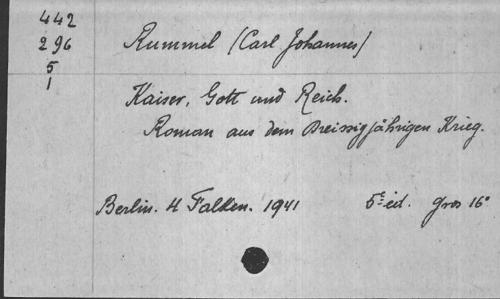 442
296
5
1
Rummel (Carl Johannes)
Kaiser, Gott und Reich.
Roman aus dem Dreissigjährigen Krieg.
Berlin. 4 Falken. 1941 5e éd. gros 16°